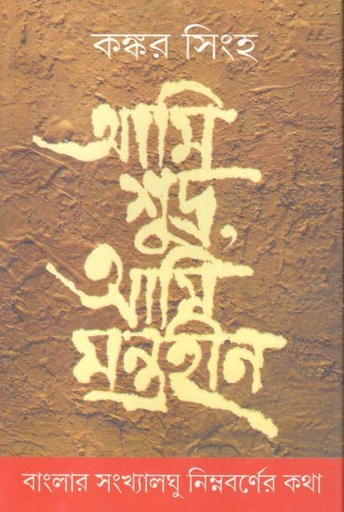 কঙ্কর সিংহ
আমি
শূদ্র,
আমি
মন্ত্রহীন
বাংলার সংখ্যালঘু নিম্নবর্ণের কথা